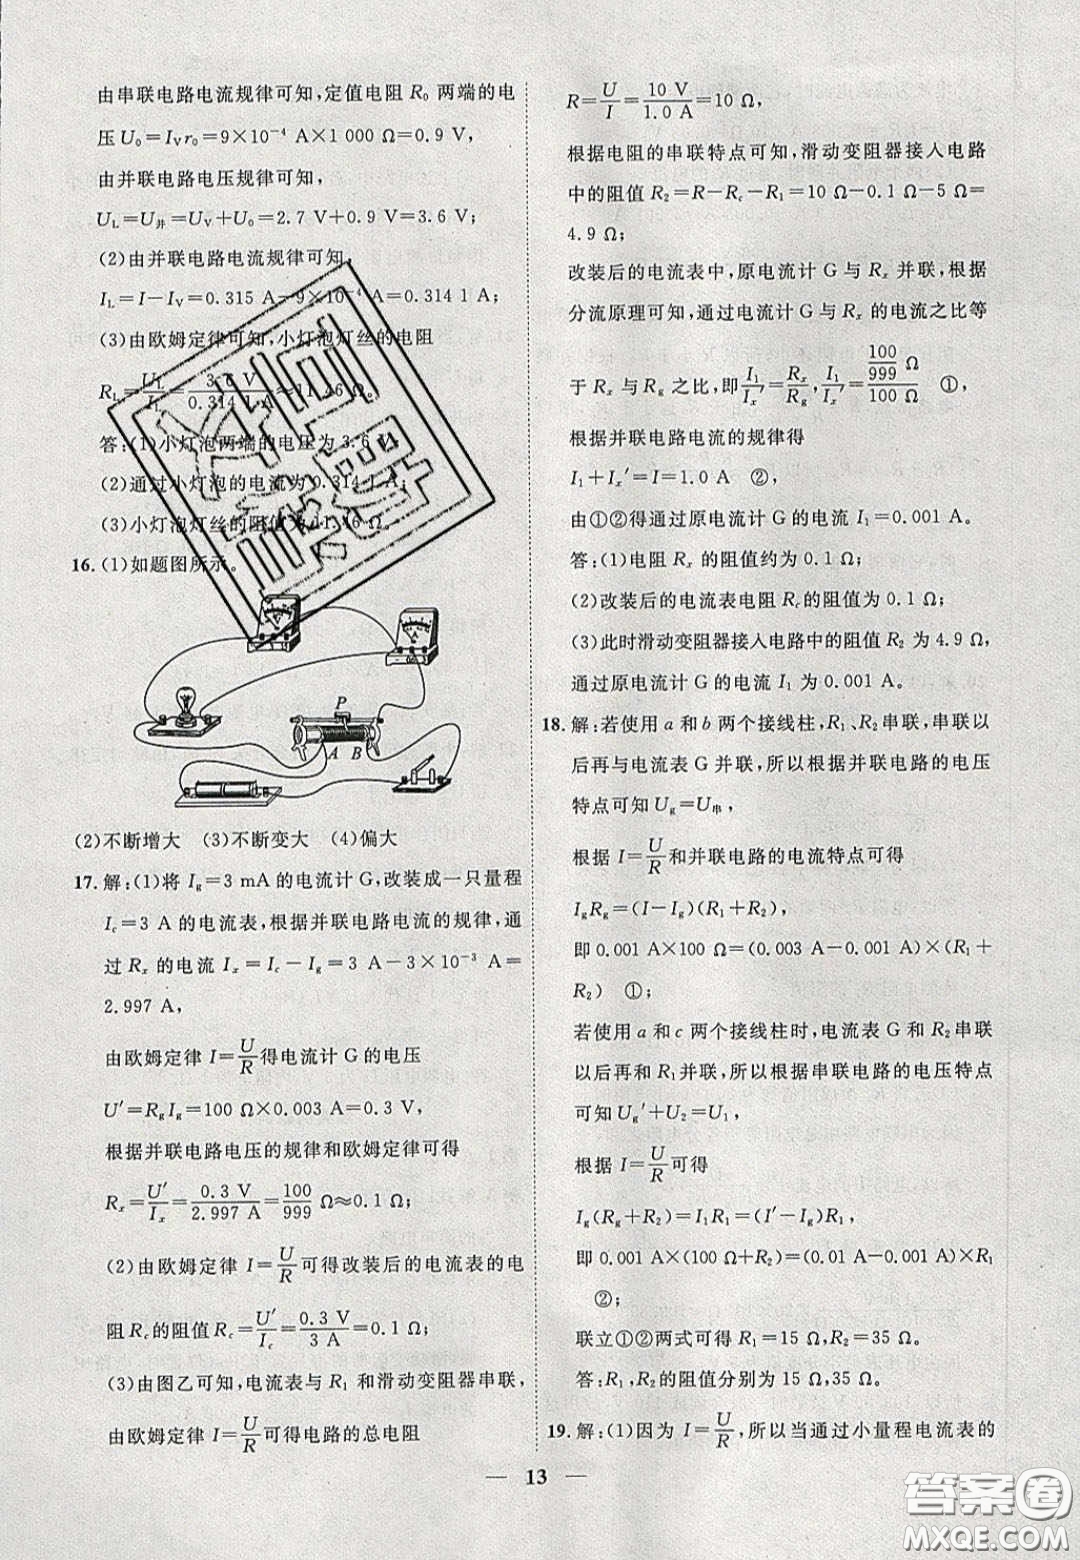 由串联电路电流规律可知,定值电阻 R₀ 两端的电
压 U₀=I_V r₀=9×10⁻⁴ A×1 000 Ω=0.9 V,
由并联电路电压规律可知,
U_L=U_并=U_V+U₀=2.7 V+0.9 V=3.6 V;
(2)由并联电路电流规律可知,
I_L=I-I_V=0.315 A-9×10⁻⁴ A=0.314 1 A;
(3)由欧姆定律可知,小灯泡灯丝的电阻
R_L=U_L/I_L=3.6 V/0.314 1 A≈11.46 Ω。
答:(1)小灯泡两端的电压为 3.6 V;
(2)通过小灯泡的电流为 0.314 1 A;
(3)小灯泡灯丝的阻值为 11.46 Ω。
16.(1)如题图所示。
P
A B
(2)不断增大 (3)不断变大 (4)偏大
17.解:(1)将 I_g=3 mA 的电流计 G,改装成一只量程
I_c=3 A 的电流表,根据并联电路电流的规律,通
过 R_x 的电流 I_x=I_c-I_g=3 A-3×10⁻³ A=
2.997 A,
由欧姆定律 I=U/R得电流计 G 的电压
U′=R_g I_g=100 Ω×0.003 A=0.3 V,
根据并联电路电压的规律和欧姆定律可得
R_x=U′/I_x=0.3 V/2.997 A=100/999 Ω≈0.1 Ω;
(2)由欧姆定律 I=U/R可得改装后的电流表的电
阻 R_c的阻值 R_c=U′/I_c=0.3 V/3 A=0.1 Ω;
(3)由图乙可知,电流表与 R₁ 和滑动变阻器串联,
由欧姆定律 I=U/R可得电路的总电阻
R=U/I=10 V/1.0 A=10 Ω,
根据电阻的串联特点可知,滑动变阻器接入电路
中的阻值 R₂=R-R_c-R₁=10 Ω-0.1 Ω-5 Ω=
4.9 Ω;
改装后的电流表中,原电流计 G 与 R_x 并联,根据
分流原理可知,通过电流计 G 与 R_x 的电流之比等
于 R_x 与 R_g 之比,即I₁/I_x′=R_x/R_g,I₁/I_x′=(100/999 Ω)/(100 Ω) ①,
根据并联电路电流的规律得
I₁+I_x′=I=1.0 A ②,
由①②得通过原电流计 G 的电流 I₁=0.001 A。
答:(1)电阻 R_x 的阻值约为 0.1 Ω;
(2)改装后的电流表电阻 R_c的阻值为 0.1 Ω;
(3)此时滑动变阻器接入电路中的阻值 R₂ 为 4.9 Ω,
通过原电流计 G 的电流 I₁ 为 0.001 A。
18.解:若使用 a 和 b 两个接线柱,R₁、R₂串联,串联以
后再与电流表 G 并联,所以根据并联电路的电压
特点可知 U_g=U_串,
根据 I=U/R和并联电路的电流特点可得
I_g R_g=(I-I_g)(R₁+R₂),
即 0.001 A×100 Ω=(0.003 A-0.001 A)×(R₁+
R₂) ①;
若使用 a 和 c 两个接线柱时,电流表 G 和 R₂串联
以后再和 R₁并联,所以根据串联电路的电压特点
可知 U_g′+U₂=U₁,
根据 I=U/R可得
I_g(R_g+R₂)=I₁R₁=(I′-I_g)R₁,
即 0.001 A×(100 Ω+R₂)=(0.01 A-0.001 A)×R₁
②;
联立①②两式可得 R₁=15 Ω,R₂=35 Ω。
答:R₁,R₂ 的阻值分别为 15 Ω,35 Ω。
19.解:(1)因为 I=U/R,所以当通过小量程电流表的
13
答案圈
MXQE.COM